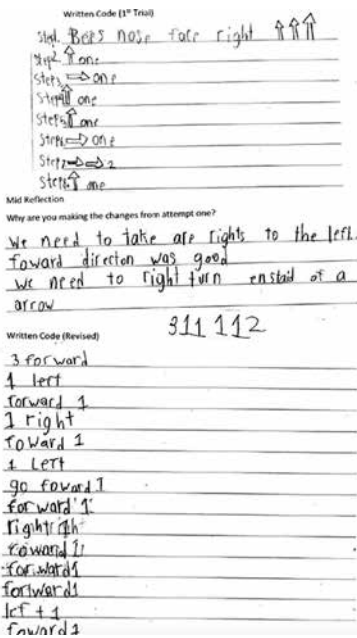 Written Code (1st Trial)
Step1. Bees nose face right ⇧⇧⇧
Step2 ⇧ one
Step3 ⇨ one
Step4 ⇧ one
Step5 ⇧ one
Step6 ⇨ one
Step7 ⇨⇨ 2
Step8 ⇧ one
Mid Reflection
Why are you making the changes from attempt one?
we need to take are rights to the left.
foward directon was good
we need to right turn enstaid of a
arrow
311 112
Written Code (Revised)
3 forward
1 left
forward 1
1 right
foward 1
1 Left
go foward 1
forward 1
right
foward 1
forward 1
forward 1
left 1
foward 1